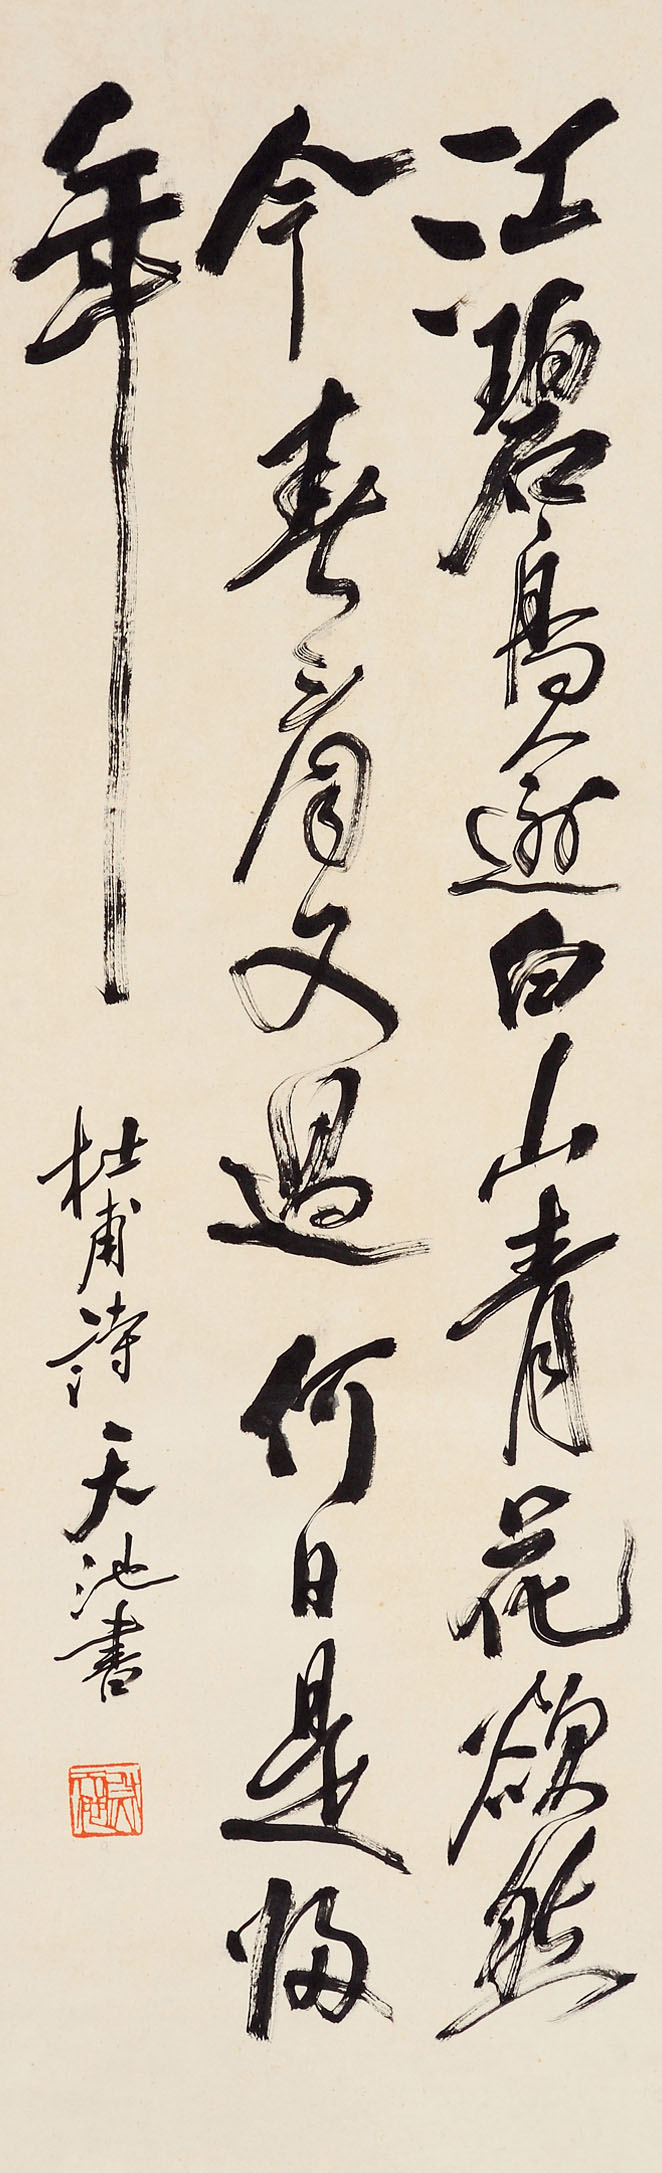 江碧鳥逾白山青花欲然
今春看又過何日是歸
年
杜甫詩天池書